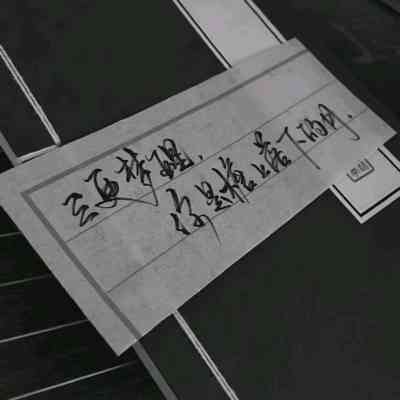 三更梦醒，
你是檐上落下的月.